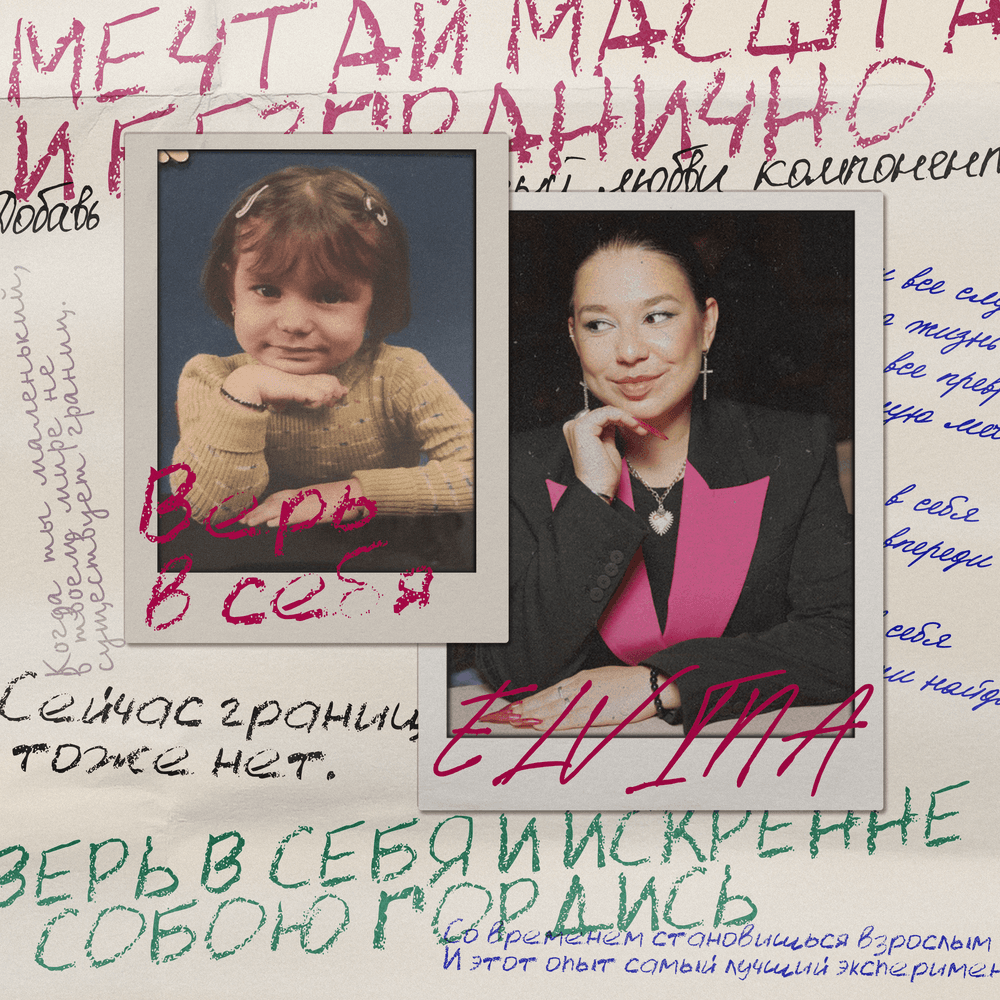 МЕЧТАЙ МАСШТА
И БЕЗГРАНИЧНО
Добавь любви компонент
Когда ты маленький,
в твоем мире не
существует границ.
все
жизнь
все
в себя
впереди
себя
Верь
в себя
ELVINA
Сейчас границ
тоже нет.
ВЕРЬ В СЕБЯ И ИСКРЕННЕ
СОБОЮ ГОРДИСЬ
Со временем становишься взрослым
И этот опыт самый лучший эксперимен